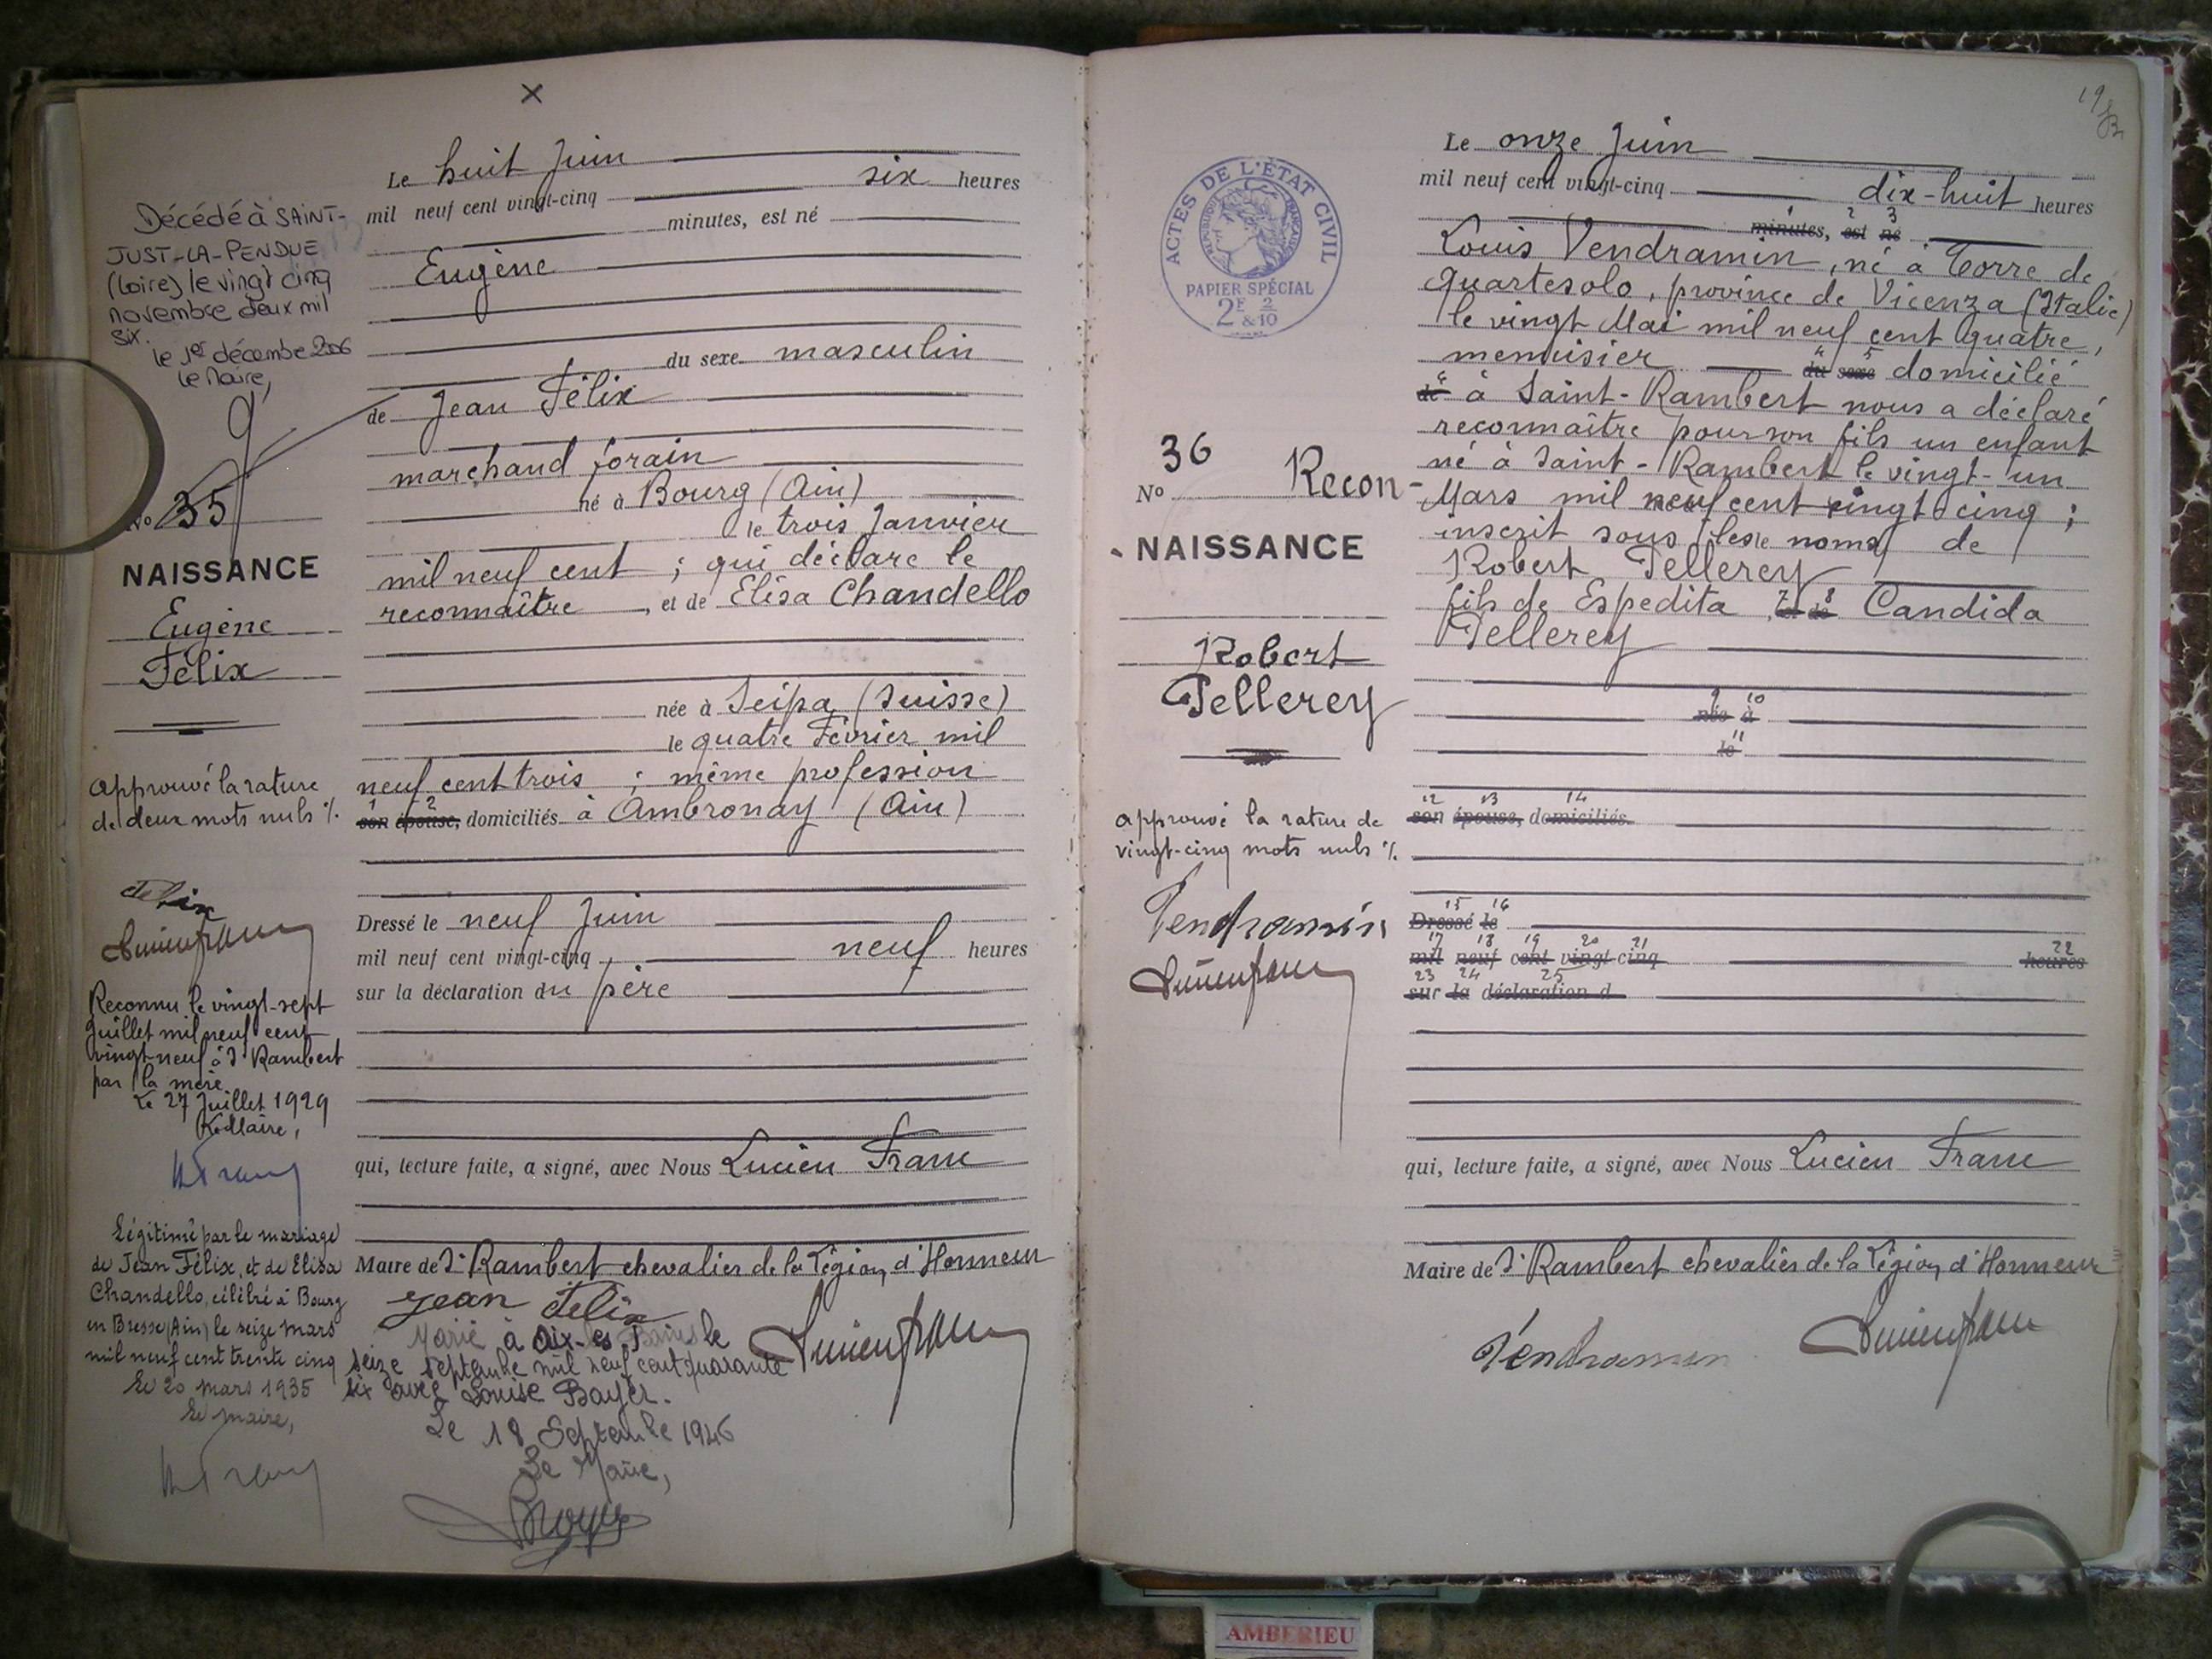 ×
Décédé à SAINT-
JUST-LA-PENDUE
(Loire) le vingt cinq
novembre deux mil
six.
le 1er décembre 2006
Le Maire,
No 35
NAISSANCE
Eugène
Félix
Approuvé la rature
de deux mots nuls ./.
Félix
Lucien Franc
Reconnu le vingt-sept
Juillet mil neuf cent
vingt neuf à St Rambert
par la mère
Le 27 Juillet 1929
Le Maire,
Légitimé par le mariage
de Jean Félix, et de Elisa
Chandello, célébré à Bourg
en Bresse (Ain) le seize mars
mil neuf cent trente cinq
Le 20 mars 1935
Le maire,
Le huit Juin
mil neuf cent vingt-cinq six heures
minutes, est né
Eugène
du sexe masculin
de Jean Félix
marchand forain
né à Bourg (Ain)
le trois Janvier
mil neuf cent ; qui déclare le
reconnaître , et de Elisa Chandello
née à Seipa (Suisse)
le quatre Février mil
neuf cent trois ; même profession
1 2
son épouse, domiciliés à Ambronay (Ain)
Dressé le neuf Juin
mil neuf cent vingt-cinq neuf heures
sur la déclaration du père
qui, lecture faite, a signé, avec Nous Lucien Franc
Maire de St Rambert chevalier de la Légion d'Honneur
Jean Félix
Lucien Franc
Marié à Aix-les-Bains le
seize septembre mil neuf cent quarante
six avec Louise Bayer.
Le 18 Septembre 1946
Le Maire,
ACTES DE L'ÉTAT CIVIL
RÉPUBLIQUE FRANÇAISE
PAPIER SPÉCIAL
2F 2/10
&
No 36 Recon-
NAISSANCE
Robert
Pellerey
approuvé la rature de
vingt-cinq mots nuls ./.
Vendramin
Lucien Franc
19
Le onze Juin
mil neuf cent vingt-cinq dix-huit heures
1 2 3
minutes, est né
Louis Vendramin, né à Torre de
Quartesolo, province de Vicenza (Italie)
le vingt Mai mil neuf cent quatre,
4 5
menuisier du sexe domicilié
6
de à Saint-Rambert nous a déclaré
reconnaître pour son fils un enfant
né à Saint-Rambert le vingt-un
Mars mil neuf cent vingt cinq ;
inscrit sous les noms de
Robert Pellerey
7 8
fils de Espedita , et de Candida
Pellerey
9 10
née à
11
le
12 13 14
son épouse, domiciliés
15 16
Dressé le
17 18 19 20 21 22
mil neuf cent vingt-cinq heures
23 24 25
sur la déclaration d
qui, lecture faite, a signé, avec Nous Lucien Franc
Maire de St Rambert chevalier de la Légion d'Honneur
Vendramin
Lucien Franc
AMBERIEU